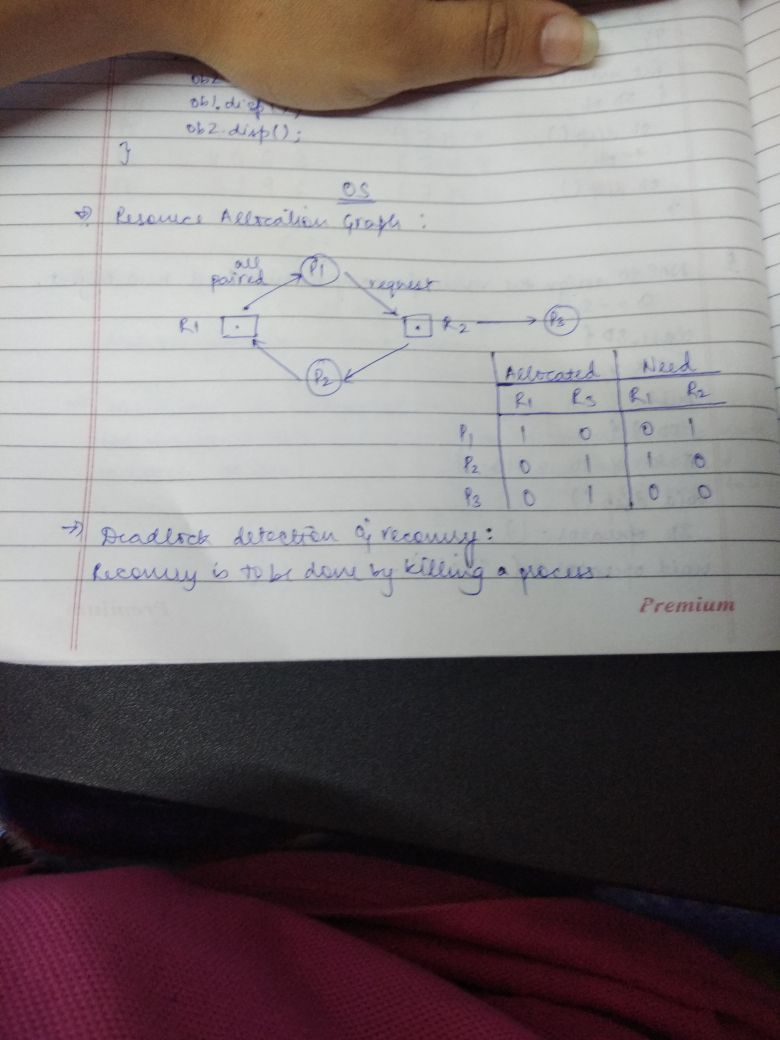 ob2
ob1.disp();
ob2.disp();
}
OS
⇒ Resource Allocation Graph:
all
paired
P1
request
R1
R2
P3
P2
Allocated Need
R1 R3 R1 R2
P1 1 0 0 1
P2 0 1 1 0
P3 0 1 0 0
⇒ Deadlock detection & recovery:
Recovery is to be done by killing a process.
Premium